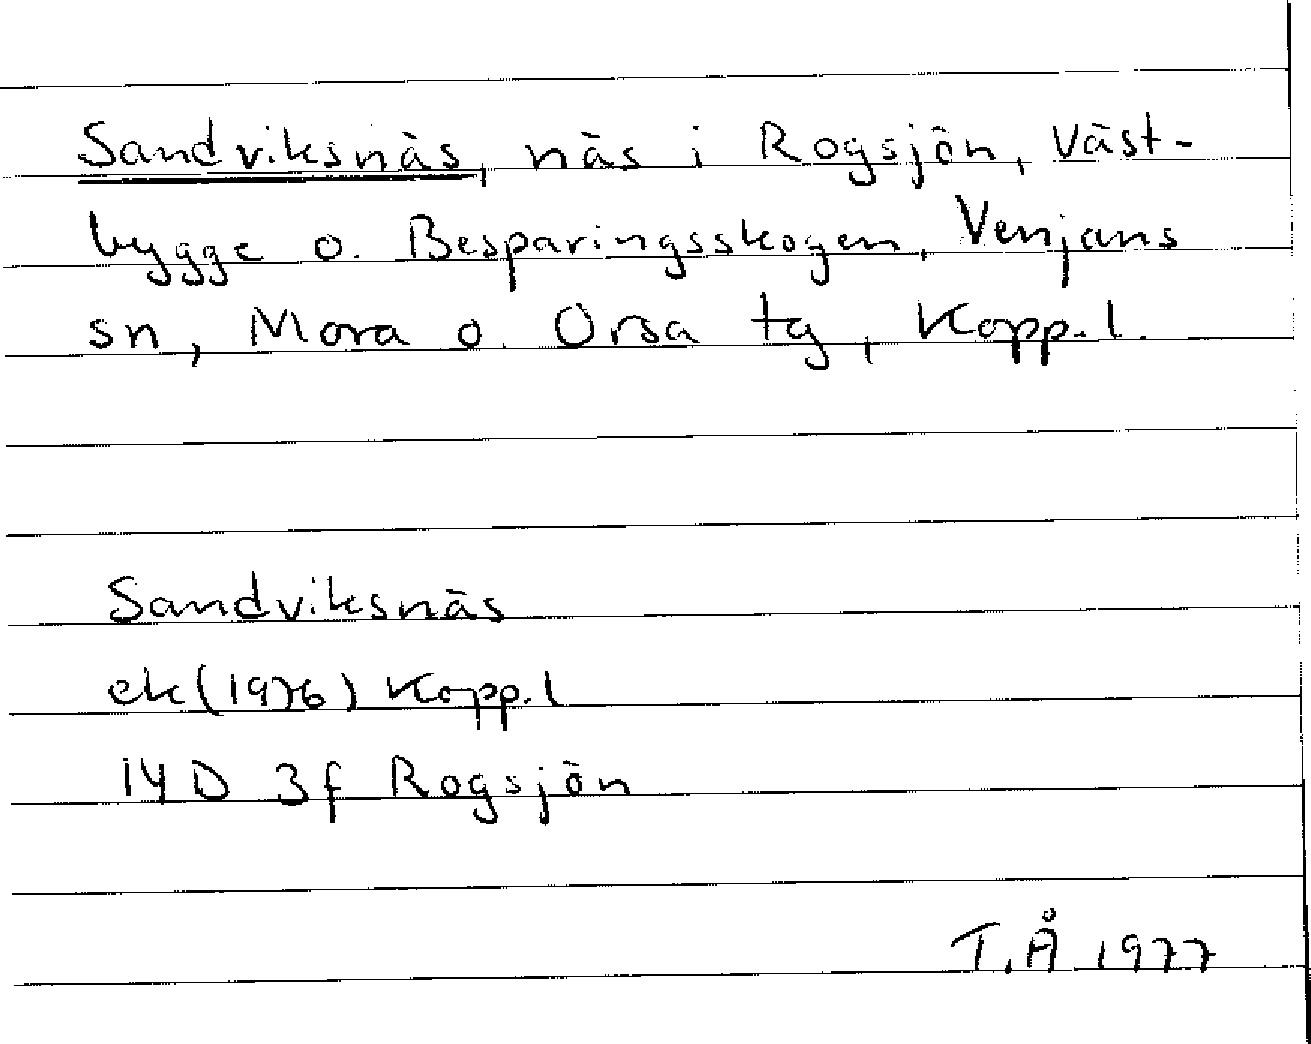 Sandviksnäs, näs i Rogsjön, Väst-
bygge o. Besparingsskogen, Venjans
sn, Mora o. Orsa tg, Kopp.l.
Sandviksnäs
ek (1976) Kopp.l
14D 3f Rogsjön
T.Å 1977